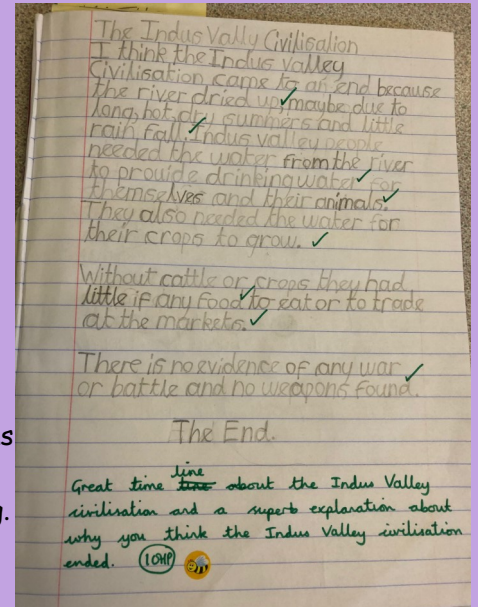 The Indus Vally Civilisation
I think the Indus valley
Civilisation came to an end because
the river dried up, maybe due to
long, hot, dry summers and little
rain fall. Indus valley people
needed the water from the river
to provide drinking water for
themselves and their animals.
They also needed the water for
their crops to grow.
Without cattle or crops they had
little if any food to eat or to trade
at the markets.
There is no evidence of any war
or battle and no weapons found.
The End.
line
Great time about the Indus Valley
civilisation and a superb explanation about
why you think the Indus Valley civilisation
ended. 10HP
s
.